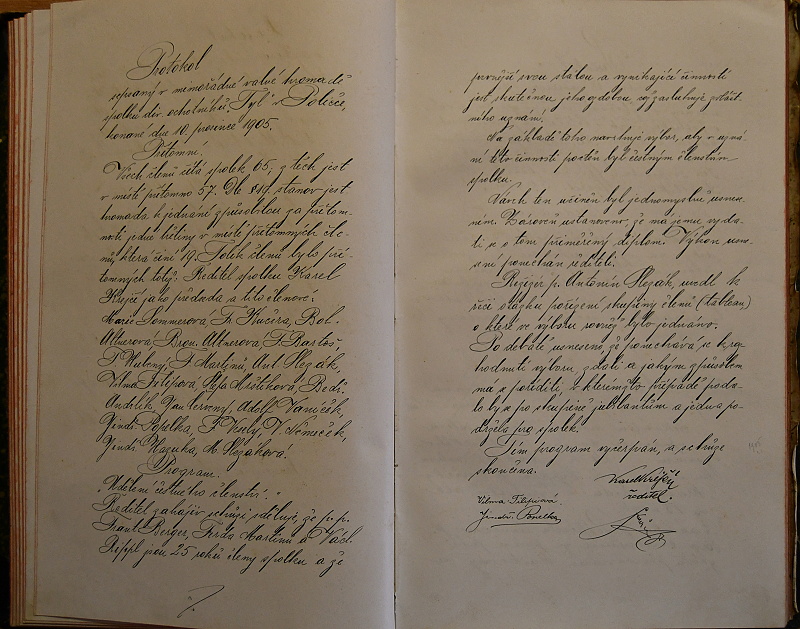 Protokol
sepsaný v mimořádné valné hromadě
spolku div. ochotníků „Tyl“ v Poličce,
konané dne 10. prosince 1905.
Přítomni:
Všech členů čítá spolek 65, z těch jest
v místě přítomno 57. Dle § 19. stanov jest
hromada k jednání způsobilou za přítom-
nosti jedné třetiny v místě přítomných čle-
nů, která činí 19. Tolik členů bylo pří-
tomných totiž: Ředitel spolku Karel
Krejčí jako předseda a tito členové:
Marie Sommerová, Fr. Kučera, Boh.
Altnerová, Bron. Altnerová, F. Bartoš,
F. Martinů, Ant. Slezák,
Vilma Filipová, Mrštíková, Bedř.
Andrlík, Jan Červený, Adolf Vaníček,
Jindř. Popelka, F. Veselý, V. Němeček,
Jindř. M. Slezáková.
Program.
„Udělení čestného členství.“
Ředitel zahájiv schůzi sděluje, že p. p.
Frant. Berger, Ferd. Martinů a Václ.
Reippl jsou 25 roků členy spolku a že
prvnější svou stálou a vynikající činností
jest skutečnou jeho ozdobou, což zasluhuje zvlášt-
ního uznání.
Na základě toho navrhuje výbor, aby v uzná-
ní této činnosti poctěn byl čestným členstvím
spolku.
Návrh ten učiněn byl jednomyslně usnese-
ním. Zároveň ustanoveno, že má jemu vydá-
ti se o tom přiměřený diplom. Výkon usne-
sení ponechán řediteli.
Režisér p. Antonín Slezák, uvedl k
řeči otázku pořízení skupiny členů (tableau)
o které ve výboru rovněž bylo jednáno.
Po debatě usneseno, že ponechává se k roz-
hodnutí výboru, zdali a jakým způsobem
má se poříditi, v kterémžto případě poda-
lo by se po skupině jubilantům a jedna po-
držela pro spolek.
Tím program vyčerpán, a schůze
skončena.
Karel Krejčí
ředitel.
Vilma Filipová.
Jindř. Popelka